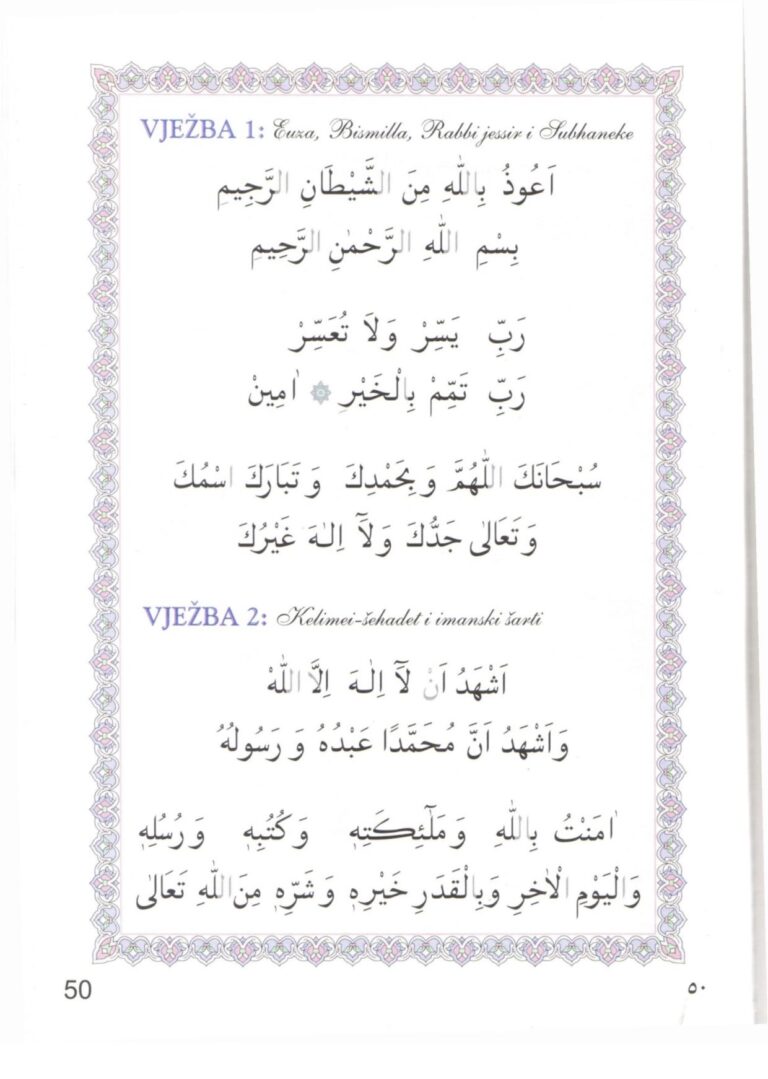 VJEŽBA 1: Euza, Bismilla, Rabbi jessir i Subhaneke
اَعُوذُ بِاللّٰهِ مِنَ الشَّيْطَانِ الرَّجِيمِ
بِسْمِ اللّٰهِ الرَّحْمٰنِ الرَّحِيمِ
رَبِّ يَسِّرْ وَلَا تُعَسِّرْ
رَبِّ تَمِّمْ بِالْخَيْرِ ۞ اٰمِينْ
سُبْحَانَكَ اللّٰهُمَّ وَبِحَمْدِكَ وَتَبَارَكَ اسْمُكَ
وَتَعَالٰى جَدُّكَ وَلَآ اِلٰهَ غَيْرُكَ
VJEŽBA 2: Kelimei-šehadet i imanski šarti
اَشْهَدُ اَنْ لَآ اِلٰهَ اِلَّا اللّٰهْ
وَاَشْهَدُ اَنَّ مُحَمَّدًا عَبْدُهُ وَرَسُولُهُ
اٰمَنْتُ بِاللّٰهِ وَمَلٰٓئِكَتِهٖ وَكُتُبِهٖ وَرُسُلِهٖ
وَالْيَوْمِ الْاٰخِرِ وَبِالْقَدَرِ خَيْرِهٖ وَشَرِّهٖ مِنَ اللّٰهِ تَعَالٰى
50 ٥٠